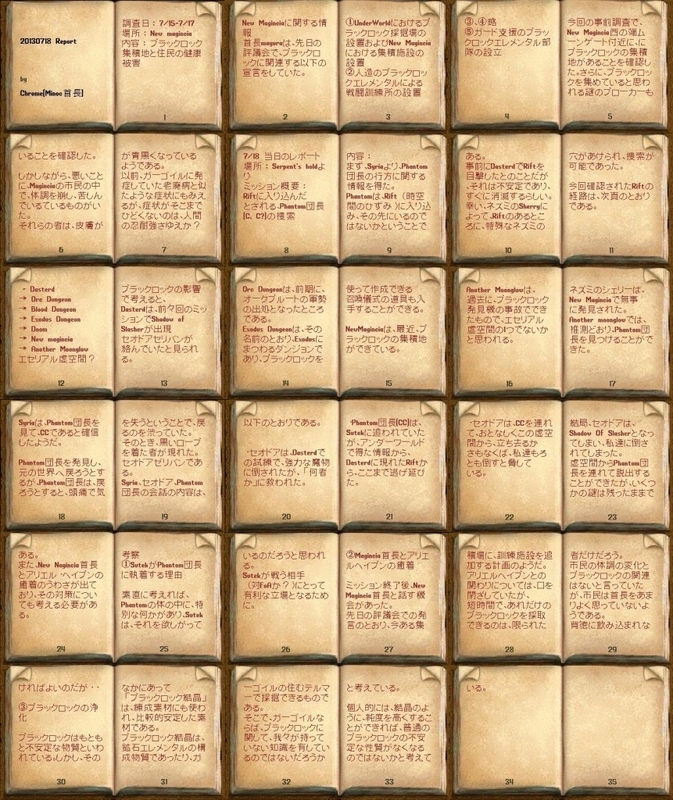 20130718 Report
by
Chrome(Minoc 首長)
調査日：7/15-7/17
場所：New magincia
内容：ブラックロック
集積地と住民の健康
被害
1
New Maginciaに関する情
報
首長maguroは、先日の
評議会で、ブラックロッ
クに関連する以下の
宣言をしていた。
2
①UnderWorldにおけるブ
ラックロック採掘場の
設置およびNew Maginciaに
おける集積施設の
設置
②人造のブラックロッ
クエレメンタルによる
戦闘訓練所の設置
3
③、④略
⑤ガード支援のブラッ
クロックエレメンタル部
隊の設立
4
今回の事前調査で、
New Magincia西の端ムー
ンゲート付近に、に
ブラックロックの集積
地があることを確認し
た。さらに、ブラックロッ
クを集めていると思わ
れる謎のブローカーも
5
いることを確認した。
しかしながら、悪いこと
に、Maginciaの市民の中
で、体調を崩し、苦しん
でいるているものがい
た。
それらの者は、皮膚が
6
が青黒くなっている
ようである。
以前、ガーゴイルに発
症していた老廃病と似
たような症状にもみえ
るが、症状がそこまで
ひどくないのは、人間
の忍耐強さゆえか？
7
7/18 当日のレポート
場所：Serpent's holdよ
り
ミッション概要：
Riftに入り込んだ
とされる、Phantom団長
(C, C?)の捜索
8
内容：
まず、Syriaより、Phantom
団長の行方に関する
情報を得た。
Phantomは、Rift（時空
間のひずみ）に入り込
み、その先にいるので
はないかということで
9
ある。
事前にDastardでRiftを
目撃したとのことだが
、それは不安定であり、
すぐに消滅するらしい。
幸い、ネズミのSherryに
よって、Riftのあるとこ
ろに、特殊なネズミの
10
穴があけられ、捜索が
可能であった。
今回確認されたRiftの
経路は、次頁のとおり
である。
11
・ Dastard
→ Orc Dungeon
→ Blood Dungeon
→ Exodus Dungeon
→ Doom
→ New magincia
→ Another Moonglow
エセリアル虚空間？
12
ブラックロックの影響
で考えると、
Dastardは、前々回のミッ
ションでShadow of
Slasherが出現
セオドアセリバンが
絡んでいたと見られ
る。
13
Orc Dungeonは、前期に、
オークブルートの軍勢
の出処となったところ
である。
Exodus Dungeonは、その
名前のとおり、Exodusに
まつわるダンジョンで
あり、ブラックロックを
14
使って作成できる
召喚儀式の道具も入
手することができる。
NewMaginciaは、最近、ブ
ラックロックの集積地
ができている。
15
Another Moonglowは、
過去に、ブラックロック
発見機の事故でてき
たもので、エセリアル
虚空間の1つでないか
と思われる。
16
ネズミのシェリーは、
New Maginciaで無事
に発見された。
Another moonglowでは、
推測どおり、Phantom団
長を見つけることがで
きた。
17
Syriaは、Phantom団長を
見て、CCであると確信
したようだ。
Phantom団長を発見し、
元の世界へ戻ろうとす
るが、Phantom団長は、戻
ろうとすると、頭痛で気
18
を失うということで、戻
るのを渋っていた。
そのとき、黒いローブ
を着た者が現れた。
セオドアセリバンであ
る。
Syria、セオドア、Phantom
団長の会話の内容は、
19
以下のとおりである。
・セオドアは、Dastardで
の試練で、強力な魔物
に倒されたが、「何者
か」に救われた。
20
・Phantom団長(CC)は、
Sutekに追われていた
が、アンダーワールド
で得た情報から、
Dastardに現れたRiftか
ら、ここまで逃げ延び
た。
21
・セオドアは、CCを連れ
て、おとなしくこの虚空
間から、立ち去るか
さもなくば、私達もろ
とも倒すと脅して
いる。
22
結局、セオドアは、
Shadow Of Slasherとなっ
てしまい、私達に倒さ
れてしまった。
虚空間からPhantom団
長を連れて脱出する
ことができたが、いくつ
かの謎は残ったままで
23
ある。
また、New Magincia首長
とアリエル・ヘイブンの
癒着のうわさが出て
おり、その対策につい
ても考える必要があ
る。
24
考察
①SutekがPhantom団長
に執着する理由
素直に考えれば、
Phantomの体の中に、特
別な何かがあり、Sutek
は、それを欲しがって
25
いるのだろうと思われ
る。
Sutekが戦う相手
（対FoAか？）にとって
有利な立場となるため
に。
26
②Magincia首長とアリエ
ルヘイブンの癒着
ミッション終了後、New
Magincia首長と話す機
会があった。
先日の評議会での発
言のとおり、今ある集
27
積場に、訓練施設を追
加する計画のようだ。
アリエルヘイブンとの
関わりについては、口を
閉ざしていたが、
短時間で、あれだけの
ブラックロックを採取
できるのは、限られた
28
者だけだろう。
市民の体調の変化と
ブラックロックの関連
はないと言っていた
が、市民は首長をあま
りよく思っていないよ
うである。
背徳に飲み込まれな
29
ければよいのだが・・
③ブラックロックの浄
化
ブラックロックはもとも
と不安定な物質といわ
れている。しかし、その
30
なかにあって
「ブラックロック結晶」
は、錬成素材にも使わ
れ、比較的安定した素
材である。
ブラックロック結晶は、
鉱石エレメンタルの構
成物質であったり、ガ
31
ーゴイルの住むテルマ
ーで採掘できるもので
ある。
そこで、ガーゴイルな
らば、ブラックロックに
関して、我々が持って
いない知識を有してい
るのではないだろうか
32
と考えている。
個人的には、結晶のよ
うに、純度を高くするこ
とができれば、普通の
ブラックロックの不安
定な性質がなくなる
のではないかと考えて
33
いる。
34
35